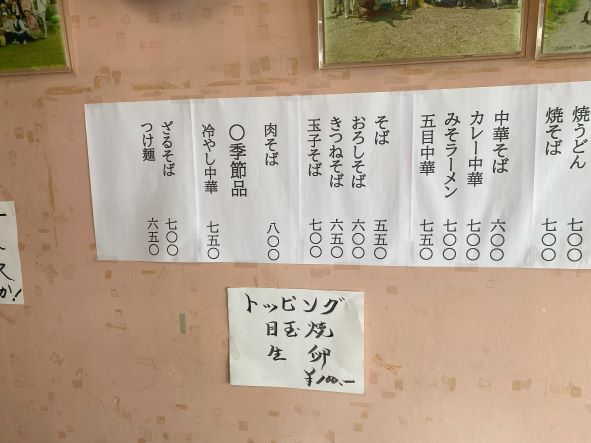 焼うどん 七〇〇
焼そば 七〇〇
中華そば 六〇〇
カレー中華 七〇〇
みそラーメン 七〇〇
五目中華 七五〇
そば 五五〇
おろしそば 六〇〇
きつねそば 六五〇
玉子そば 七〇〇
肉そば 八〇〇
〇季節品
冷やし中華 七五〇
ざるそば 七〇〇
つけ麺 六五〇
トッピング
目玉焼
生卵
¥100.-
か!